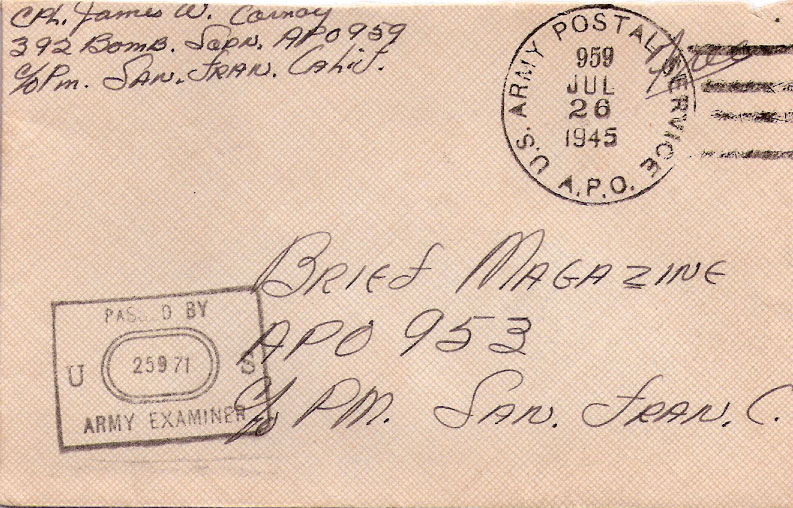 Cpl. James W. Carnay
392 Bomb. Sqdn. APO 959
c/o Pm. San. Fran. Calif.
U.S. ARMY POSTAL SERVICE
959
JUL
26
1945
A.P.O.
Free
Brief Magazine
APO 953
c/o PM. San. Fran. C.
PASS D BY
U 25971 S
ARMY EXAMINER